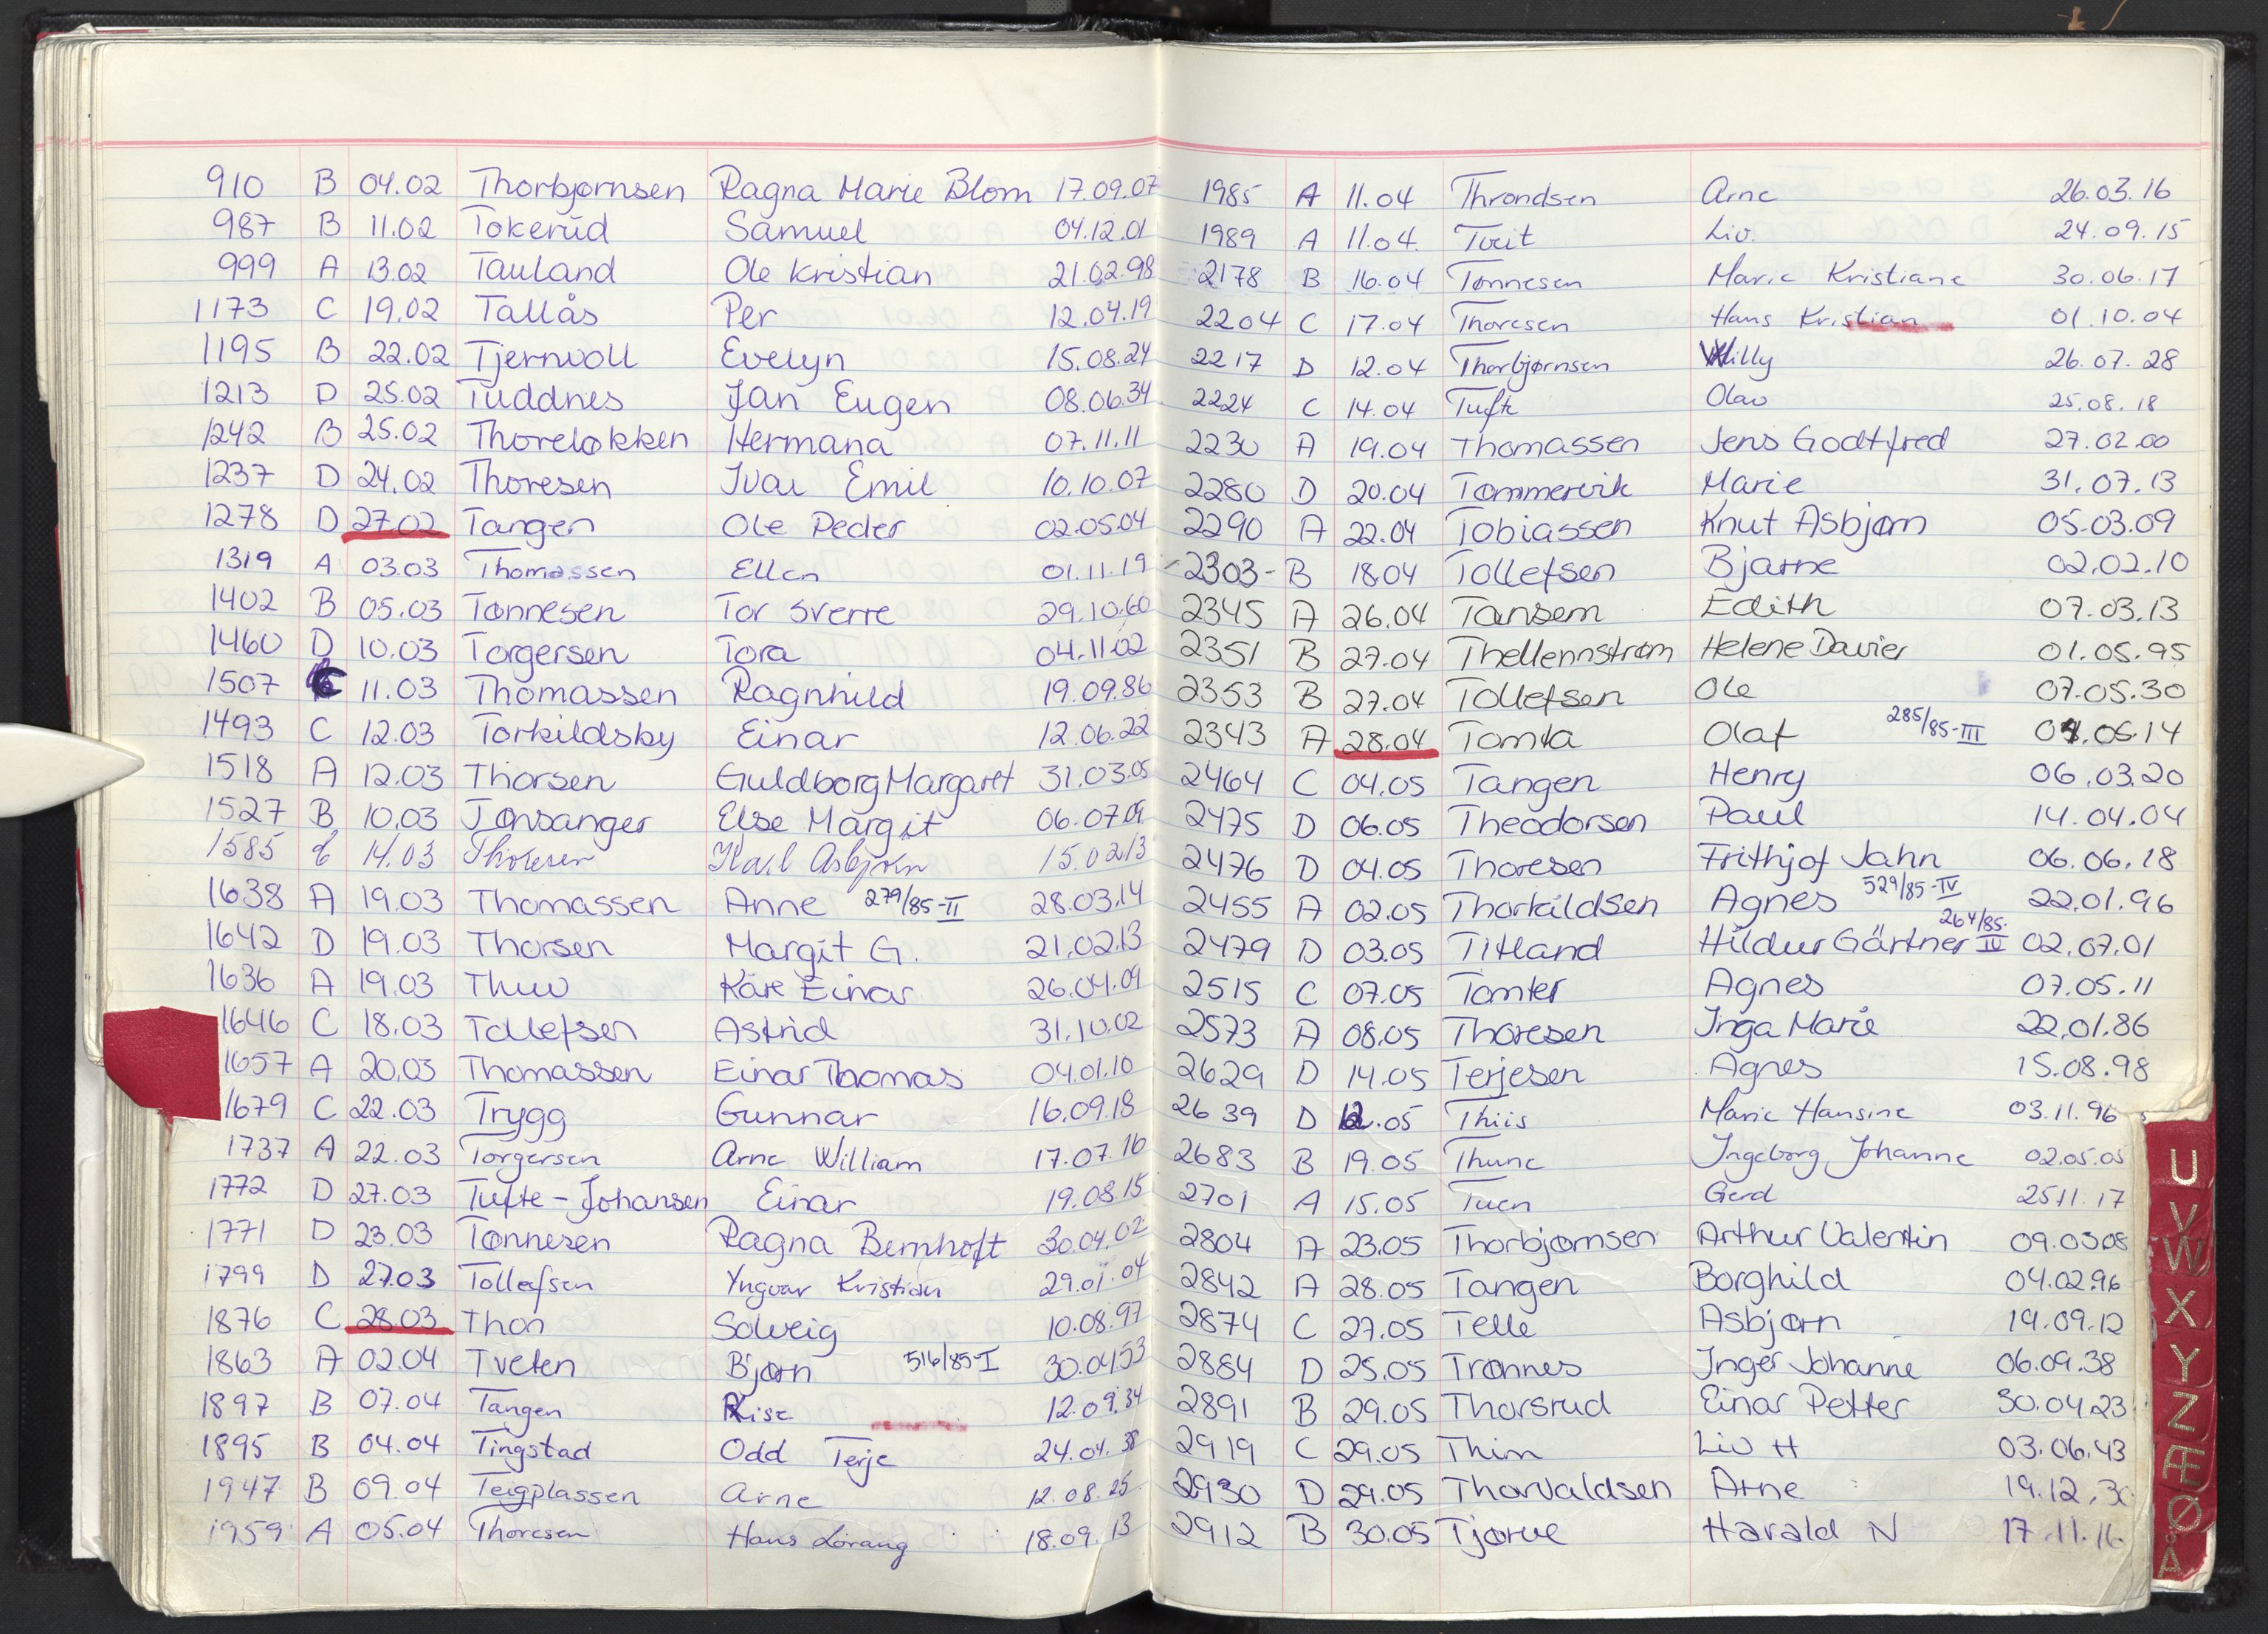 910 B 04.02 Thorbjørnsen Ragna Marie Blom 17.09.07
987 B 11.02 Tokerud Samuel 04.12.01
999 A 13.02 Tauland Ole Kristian 21.02.98
1173 C 19.02 Tallås Per 12.04.19
1195 B 22.02 Tjernvoll Evelyn 15.08.24
1213 D 25.02 Tuddnes Jan Eugen 08.06.34
1242 B 25.02 Thoreløkken Hermana 07.11.11
1237 D 24.02 Thoresen Ivar Emil 10.10.07
1278 D 27.02 Tangen Ole Peder 02.05.04
1319 A 03.03 Thomassen Ellen 01.11.19
1402 B 05.03 Tønnesen Tor Sverre 29.10.60
1460 D 10.03 Torgersen Tora 04.11.02
1507 C 11.03 Thomassen Ragnhild 19.09.86
1493 C 12.03 Torkildsby Einar 12.06.22
1518 A 12.03 Thorsen Guldborg Margaret 31.03.05
1527 B 10.03 Tonsanger Else Margit 06.07.09
1585 14.03 Thoresen Karl Asbjørn 15.02.13
1638 A 19.03 Thomassen Anne 279/85-II 28.03.14
1642 D 19.03 Thorsen Margit G. 21.02.13
1636 A 19.03 Thuv Kåre Einar 26.04.09
1646 C 18.03 Tollefsen Astrid 31.10.02
1657 A 20.03 Thomassen Einar Thomas 04.01.10
1679 C 22.03 Trygg Gunnar 16.09.18
1737 A 22.03 Torgersen Arne William 17.07.16
1772 D 27.03 Tufte-Johansen Einar 19.08.15
1771 D 23.03 Tønnesen Ragna Bernhoft 30.04.02
1799 D 27.03 Tollefsen Yngvar Kristian 29.01.04
1876 C 28.03 Thon Solveig 10.08.97
1863 A 02.04 Tveten Bjørn 516/85-I 30.04.53
1897 B 07.04 Tangen 12.09.34
1895 B 04.04 Tingstad Odd Terje 24.04.38
1947 B 09.04 Teigplassen Arne 12.08.25
1959 A 05.04 Thoresen Hans Lorang 18.09.13
1985 A 11.04 Throndsen Arne 26.03.16
1989 A 11.04 Tveit Liv. 24.09.15
2178 B 16.04 Tønnesen Marie Kristiane 30.06.17
2204 C 17.04 Thoresen Hans Kristian 01.10.04
2217 D 12.04 Thorbjørnsen Willy 26.07.28
2224 C 14.04 Tufte Olav 25.08.18
2230 A 19.04 Thomassen Jens Godtfred 27.02.00
2280 D 20.04 Tømmervik Marie 31.07.13
2290 A 22.04 Tobiassen Knut Asbjørn 05.03.09
2303 - B 18.04 Tollefsen Bjarne 02.02.10
2345 A 26.04 Tansem Edith 07.03.13
2351 B 27.04 Thellennstrøm Helene Davier 01.05.95
2353 B 27.04 Tollefsen Ole 07.05.30
2343 A 28.04 Tomta Olaf 285/85-III 04.05.14
2464 C 04.05 Tangen Henry 06.03.20
2475 D 06.05 Theodorsen Paul 14.04.04
2476 D 04.05 Thoresen Frithjof Jahn 06.06.18
2455 A 02.05 Thorkildsen Agnes 529/85-IV 22.01.96
2479 D 03.05 Titland Hildur Gärtner 264/85-IV 02.07.01
2515 C 07.05 Tomter Agnes 07.05.11
2573 A 08.05 Thoresen Inga Marie 22.01.86
2629 D 14.05 Terjesen Agnes 15.08.98
2639 D 12.05 Thiis Marie Hansine 03.11.96
2683 B 19.05 Thune Ingeborg Johanne 02.05.05
2701 A 15.05 Tuen Gerd 25.11.17
2804 A 23.05 Thorbjørnsen Arthur Valentin 09.03.08
2842 A 28.05 Tangen Borghild 04.02.96
2874 C 27.05 Telle Asbjørn 19.09.12
2884 D 25.05 Trønnes Inger Johanne 06.09.38
2891 B 29.05 Thorsrud Einar Petter 30.04.23
2919 C 29.05 Thim Liv H 03.06.43
2930 D 29.05 Thorvaldsen Arne 19.12.30
2912 B 30.05 Tjørve Harald N 17.11.16
U
V
W
X
Y
Z
Æ
Ø
Å